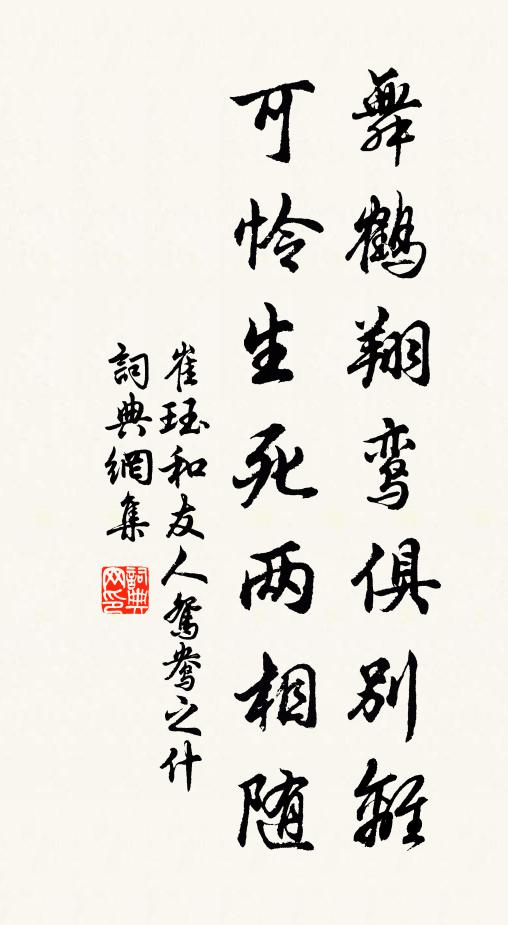 舞鶴翔鸾俱别離
可怜生死两相随
崔珏和友人鴛鴦之什
詞典網集
詞典网印